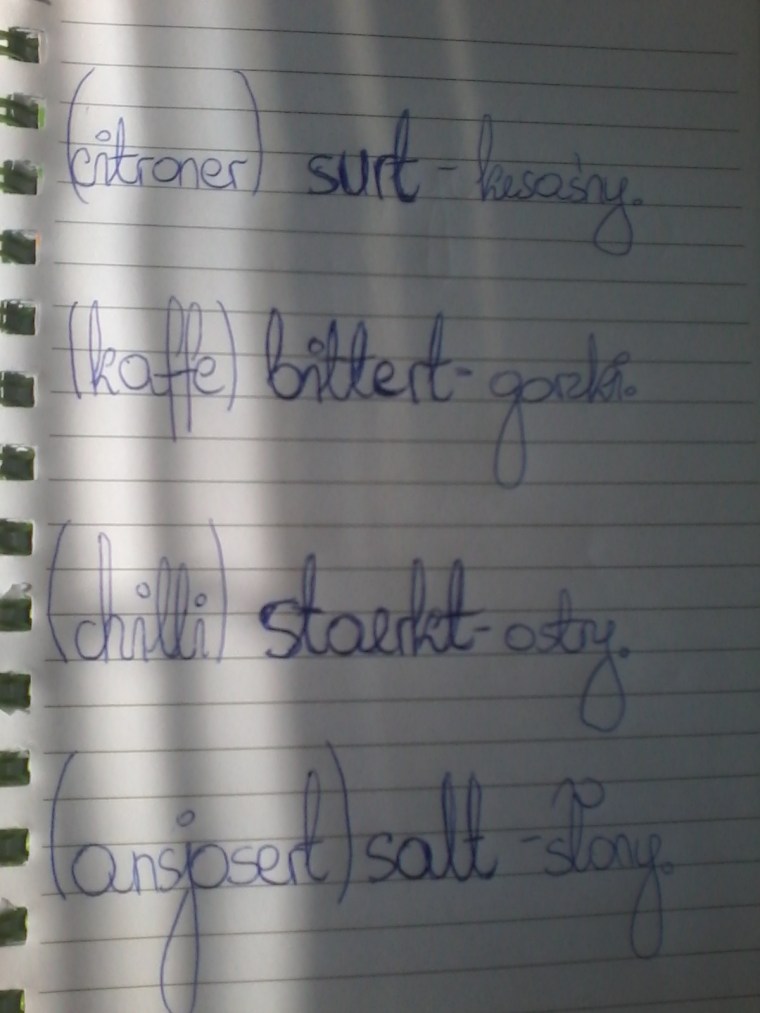 (citroner) surt - kwaśny.
(kaffe) bittert - gorzki.
(chilli) staerkt - ostry.
(ansjosert) salt - słony.